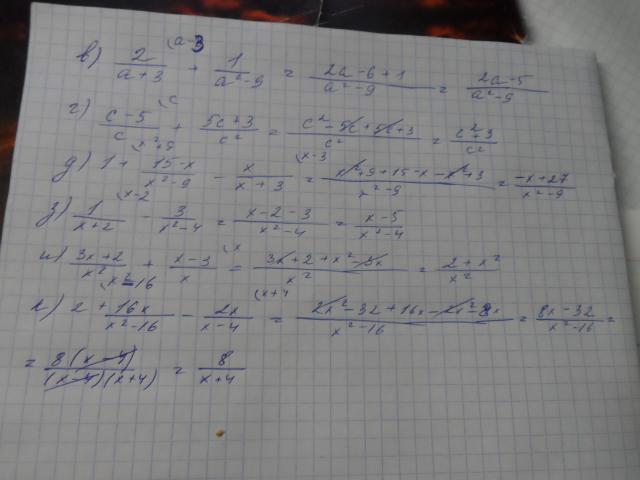 в) 2/(a+3) (a-3 + 1/(a²-9) = (2a-6+1)/(a²-9) = (2a-5)/(a²-9)
г) (c-5)/c (c + (5c+3)/c² = (c²-5c+5c+3)/c² = (c²+3)/c²
д) 1 (x²-9 + (15-x)/(x²-9) - x/(x+3) (x-3 = (x²-9+15-x-x²+3)/(x²-9) = (-x+27)/(x²-9)
з) 1/(x+2) (x-2 - 3/(x²-4) = (x-2-3)/(x²-4) = (x-5)/(x²-4)
и) (3x+2)/x² + (x-3)/x (x = (3x+2+x²-3x)/x² = (2+x²)/x²
к) 2 (x²-16 + 16x/(x²-16) - 2x/(x-4) (x+4 = (2x²-32+16x-2x²-8x)/(x²-16) = (8x-32)/(x²-16) =
= 8(x-4)/((x-4)(x+4)) = 8/(x+4)